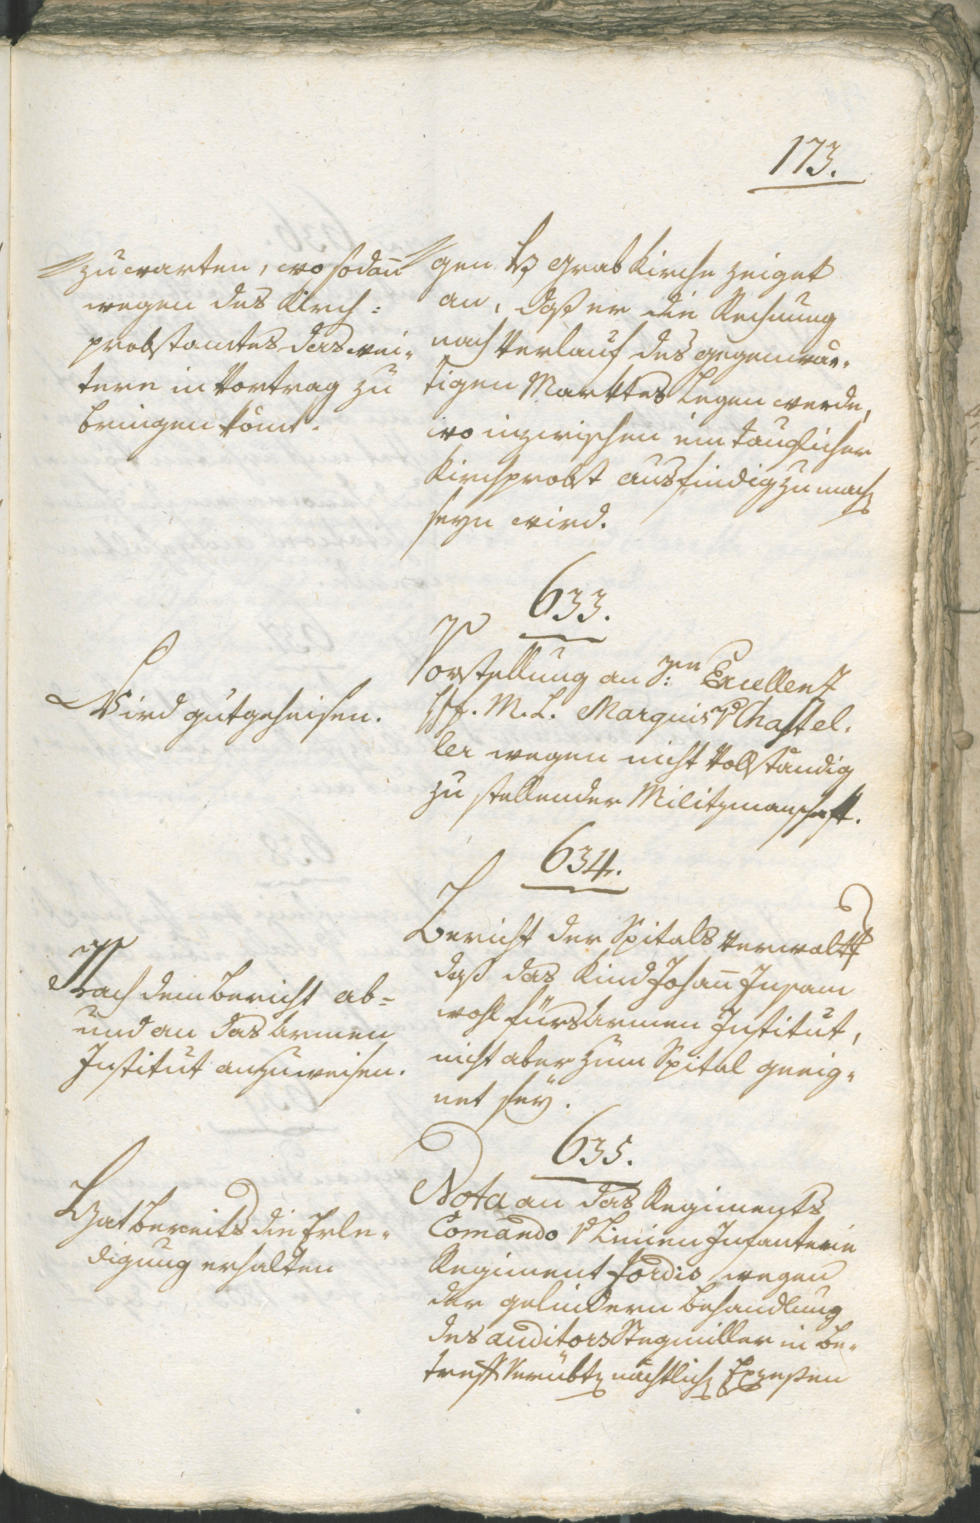 173.
zuwarten, wo sodann
wegen des Kirch=
probstamtes das wei=
tere in Vortrag zu
bringen kömt.
gen Hl: Grabkirche zeiget
an, daß er die Rechnung
nach Verlauf des gegenwär=
tigen Marktes Legen werde,
wo inzwischen ein tauglicher
Kirchprobst ausfindig zu mach
seyn wird.
633.
Wird gutgeheisen.
Vorstellung an Excellenz
H. F. M. L. Marquis Chastel=
ler wegen nicht Vollständig
zu stellender Militzmanschaft.
634.
Nach dem Bericht ab=
und an das Armen
Institut anzuweisen.
Bericht der Spitals Verwalt
daß das Kind Johan̅ Insam
wohl fürs Armen Institut,
nicht aber zum Spital geeig=
net seÿ.
635.
Hat bereits die Erle=
digung erhalten
Nota an das Regiments
Comando Linien Infanterie
Regiment Jordis wegen
der gelindern Behandlung
des Auditors Stegmiller in Be=
treff Verübt nächtlich Exzeßen